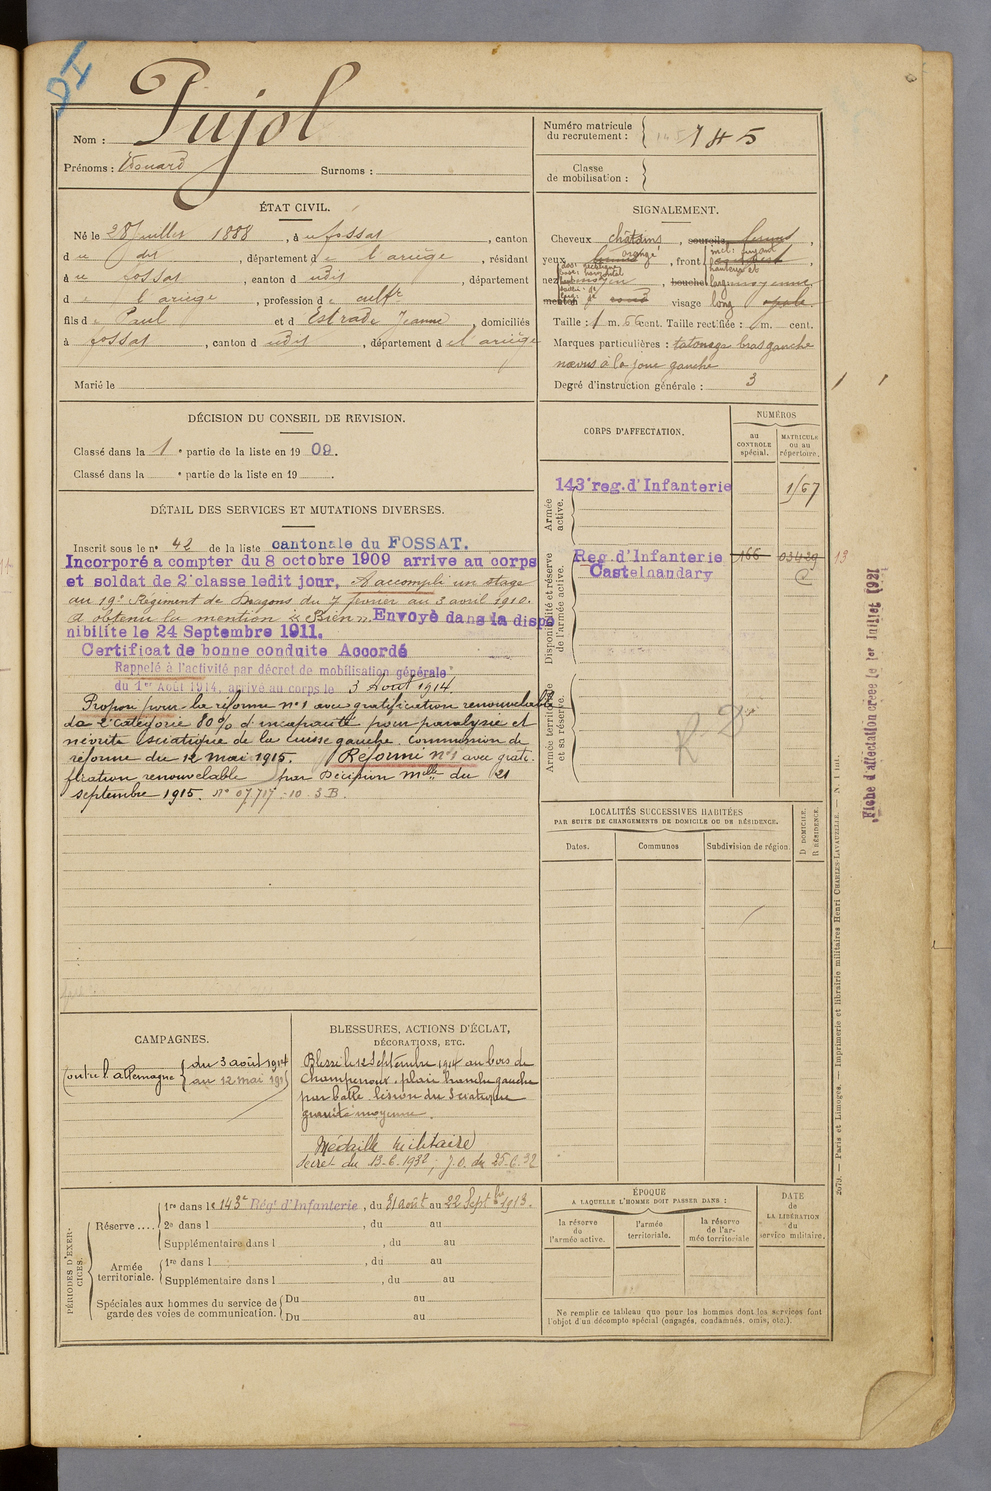 DI
Nom : Pujol
Prénoms : Edouard Surnoms :
Numéro matricule
du recrutement : 745
Classe
de mobilisation :
ÉTAT CIVIL.
Né le 28 Juillet 1888, à u fossat, canton
d u dit, département d e l'ariège, résidant
à u fossat, canton d udit, département
d e l'ariège, profession d e cultr
fils d e Paul et d Estrade Jeanne, domiciliés
à fossat, canton d udit, département d e l'ariège
Marié le
SIGNALEMENT.
Cheveux châtains, sourcils
yeux orangé, front incl: fuyant
hauteur et
nez moyen, bouche larg moyenne
menton rond visage long ovale
Taille : 1 m. 66 cent. Taille rectifiée : 1 m. cent.
Marques particulières : tatouage bras gauche
nævus à la joue gauche
Degré d'instruction générale : 3
DÉCISION DU CONSEIL DE REVISION.
Classé dans la 1e partie de la liste en 1909.
Classé dans la e partie de la liste en 19
DÉTAIL DES SERVICES ET MUTATIONS DIVERSES.
Inscrit sous le n° 42 de la liste cantonale du FOSSAT.
Incorporé a compter du 8 octobre 1909 arrive au corps
et soldat de 2e classe ledit jour, A accompli un stage
au 19e Régiment de Dragons du 7 février au 3 avril 1910.
A obtenu la mention « Bien ». Envoyé dans la dispo
nibilite le 24 Septembre 1911.
Certificat de bonne conduite Accordé
Rappelé à l'activité par décret de mobilisation générale
du 1er Août 1914, arrivé au corps le 3 Août 1914.
Proposé pour la réforme n°1 avec gratification renouvelable
de 2e catégorie 80% d'incapacité pour paralysie et
névrite sciatique de la cuisse gauche. commission de
réforme du 12 mai 1915. Réformé n°1 avec grati-
fication renouvelable par Décision mlle du 21
septembre 1915. N° 07717-10-3B.
CORPS D'AFFECTATION.
NUMÉROS
au
CONTRÔLE
spécial.
MATRICULE
ou au
répertoire.
Armée
active.
143e reg. d'Infanterie
Disponibilité et réserve
de l'armée active.
Reg. d'Infanterie 166 03429 13
Castelnaudary
Armée territoriale
et sa réserve.
Fiche d'affectation créée le 1er Juillet 1921
LOCALITÉS SUCCESSIVES HABITÉES
PAR SUITE DE CHANGEMENTS DE DOMICILE OU DE RÉSIDENCE.
Dates.
Communes
Subdivision de région.
D DOMICILE.
R RÉSIDENCE.
CAMPAGNES.
Contre l'allemagne du 3 août 1914
au 12 mai 1915
BLESSURES, ACTIONS D'ÉCLAT,
DÉCORATIONS, ETC.
Blessé le 12 Septembre 1914 au bois de
Champenoux, plaie hanche gauche
par balle. lésion du Sciatique
gravité moyenne.
Médaille Militaire
décret du 13-6-1932; J.O. du 25-6-32
PÉRIODES D'EXERCICES.
Réserve ....
1re dans le 143e Régt d'Infanterie, du 31 août au 22 Septbre 1913.
2e dans l , du au
Supplémentaire dans l , du au
Armée
territoriale.
1re dans l , du au
Supplémentaire dans l , du au
Spéciales aux hommes du service de
garde des voies de communication.
Du au
Du au
ÉPOQUE
A LAQUELLE L'HOMME DOIT PASSER DANS :
la réserve
de
l'armée active.
l'armée
territoriale.
la réserve
de l'ar-
mée territoriale
DATE
de
LA LIBÉRATION
du
service militaire.
Ne remplir ce tableau que pour les hommes dont les services font
l'objet d'un décompte spécial (engagés, condamnés, omis, etc.).
2679. — Paris et Limoges. — Imprimerie et librairie militaires Henri CHARLES-LAVAUZELLE. — N. 1 int.